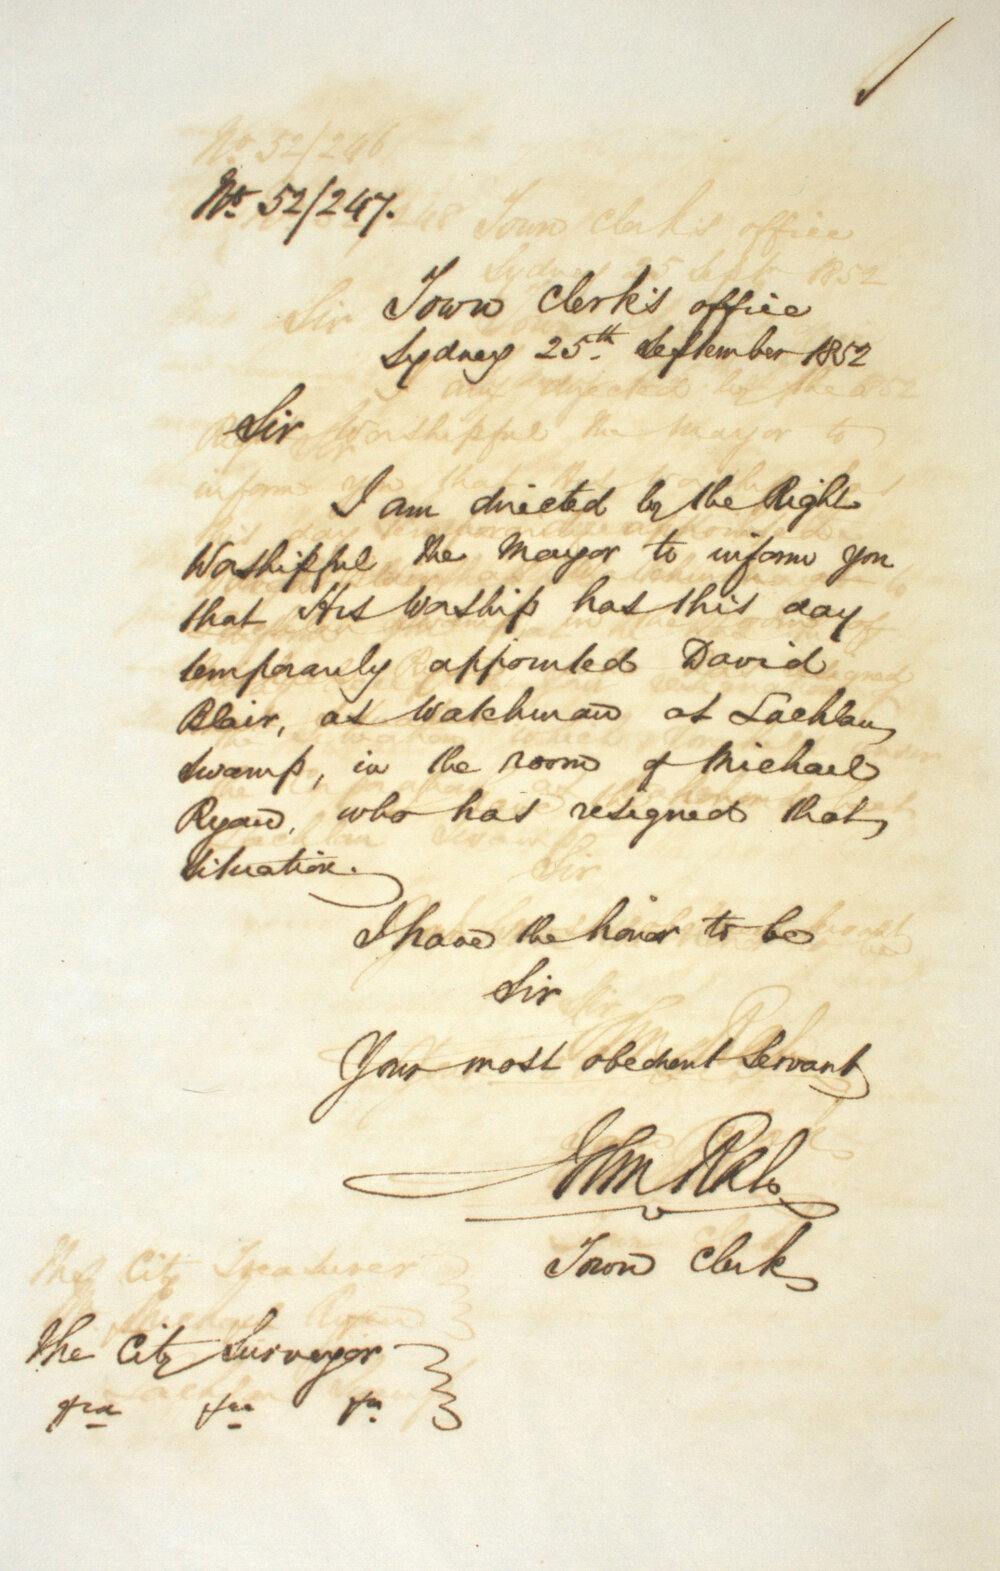 No. 52/247.
Town Clerk's office
Sydney 25th September 1852
Sir
I am directed by the Right
Worshipful the Mayor to inform you
that His Worship has this day
temporarily appointed David
Blair, as Watchman at Lachlan
Swamp, in the room of Michael
Ryan, who has resigned that
situation.
I have the honor to be
Sir
Your most obedient Servant
John Rae
Town Clerk
The City Surveyor
&ca &ca &ca